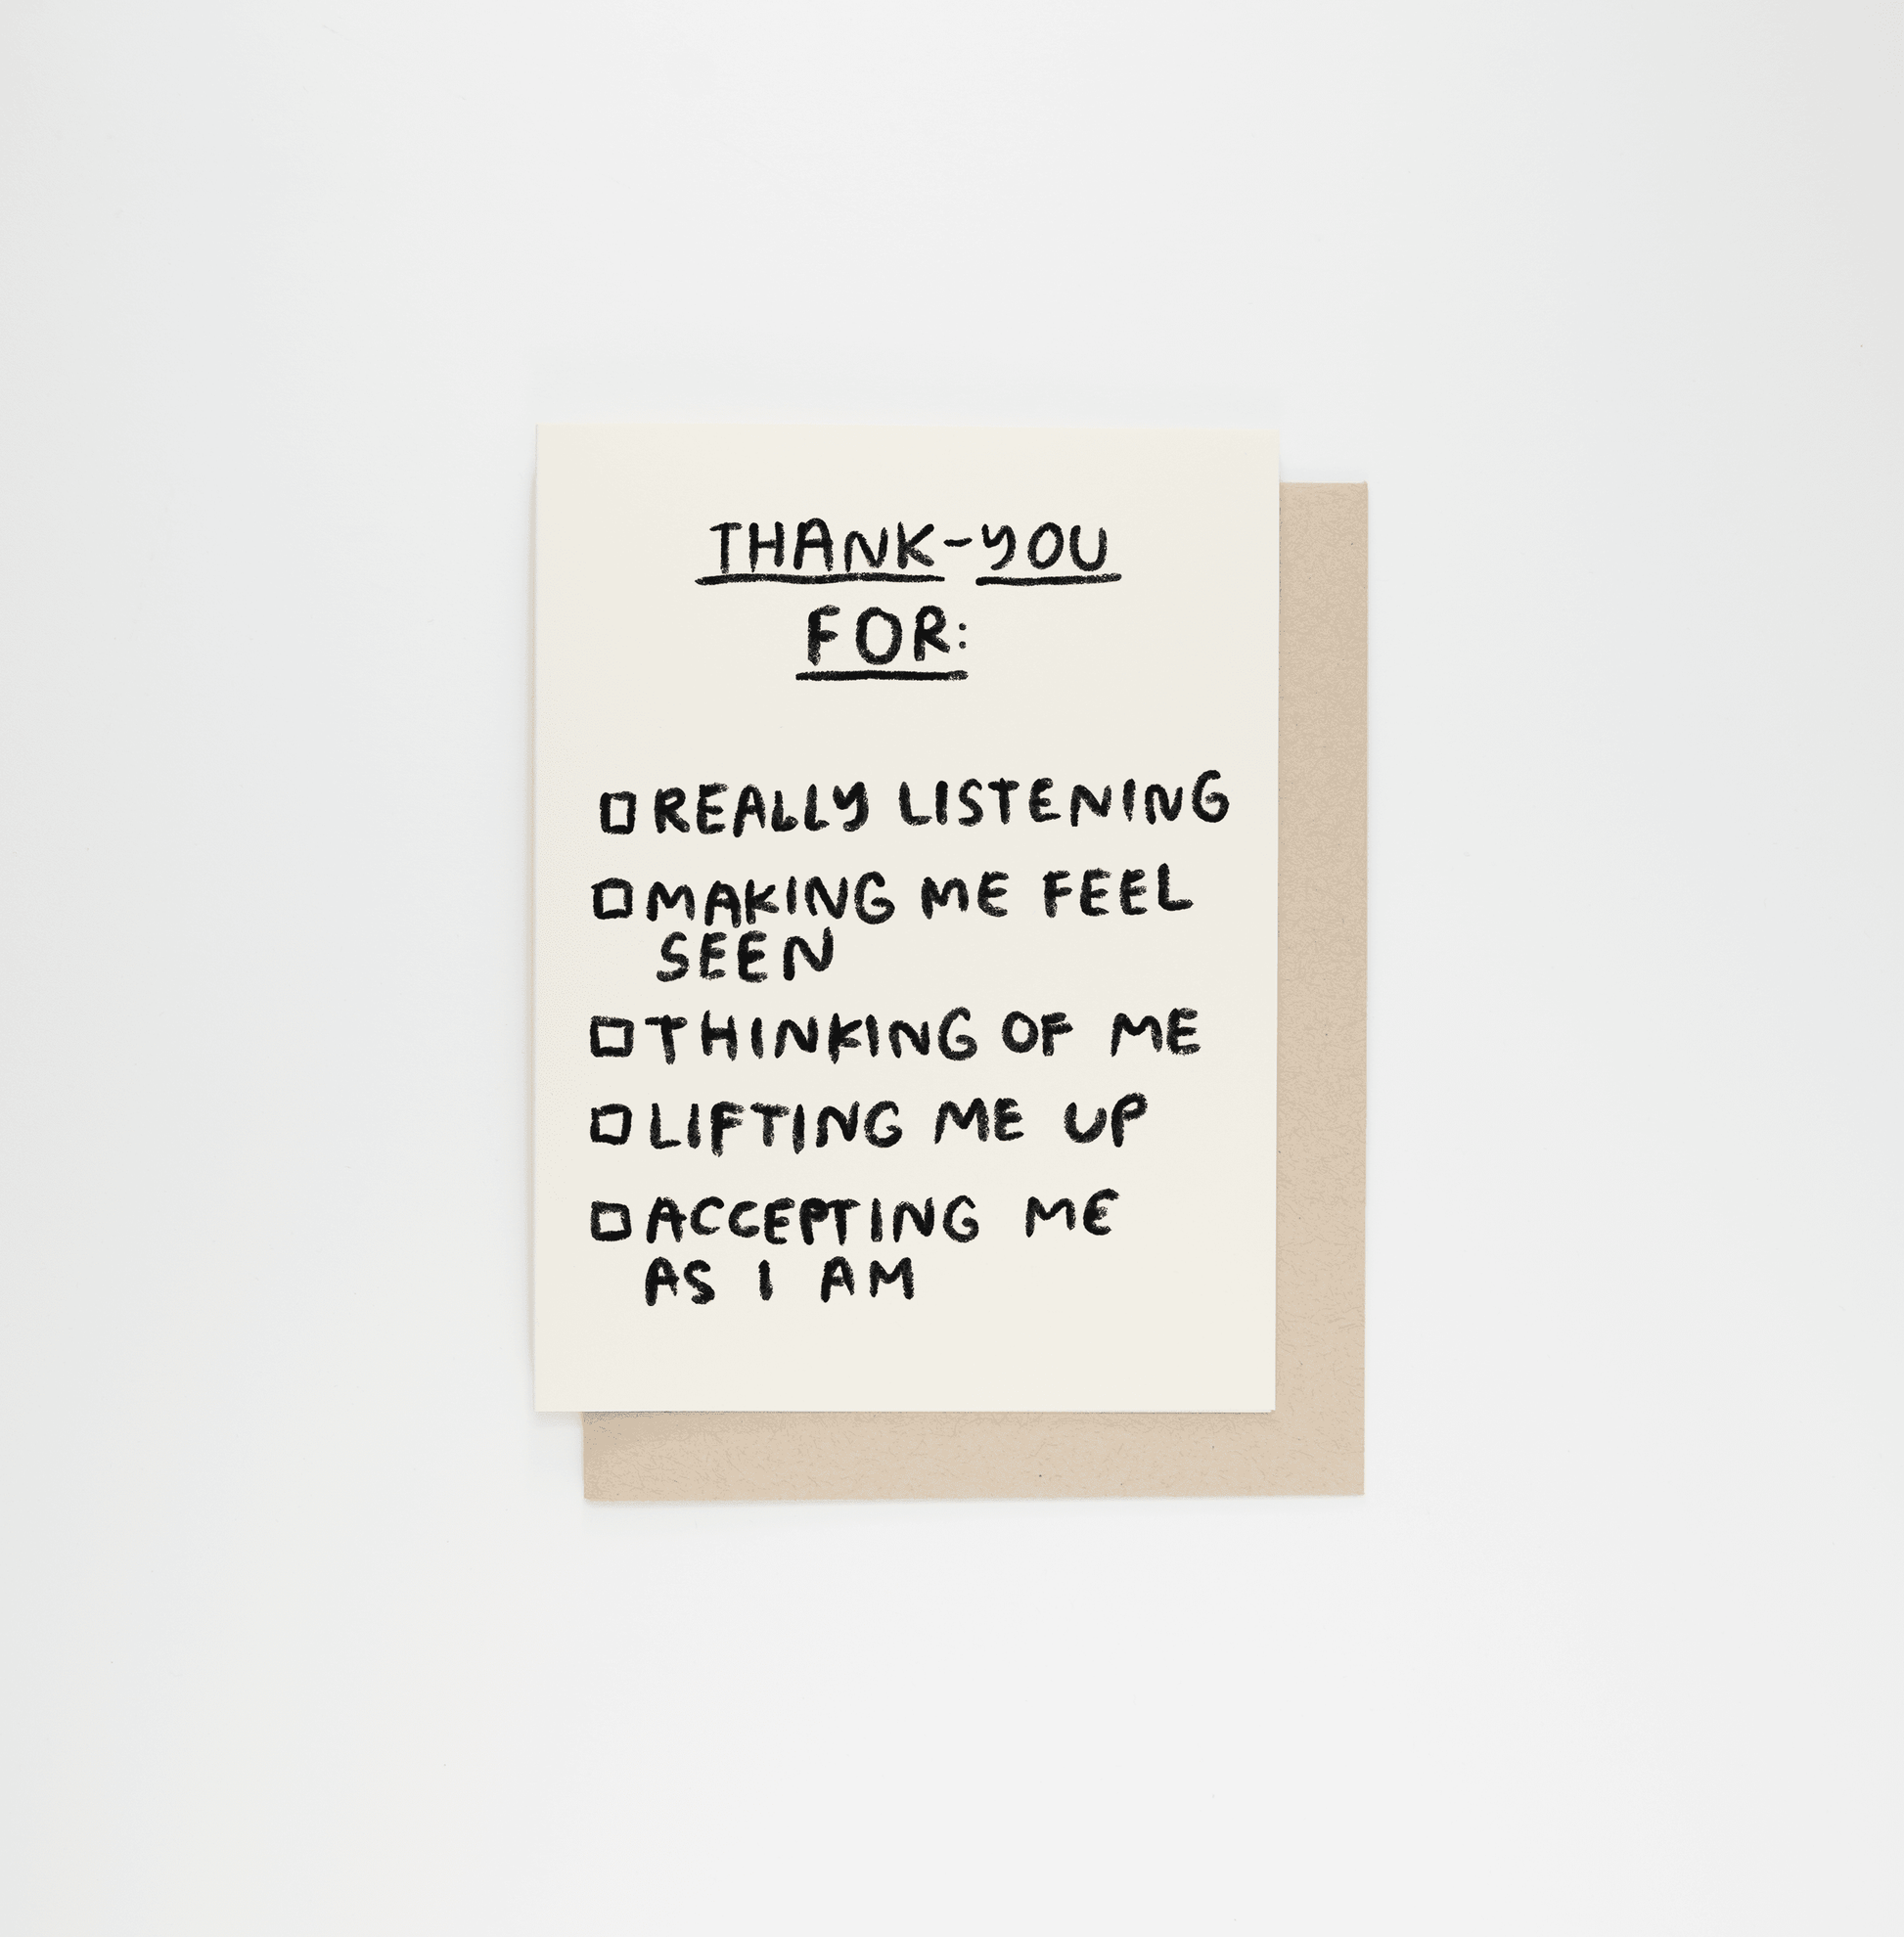 THANK-YOU
FOR:
REALLY LISTENING
MAKING ME FEEL
SEEN
THINKING OF ME
LIFTING ME UP
ACCEPTING ME
AS I AM